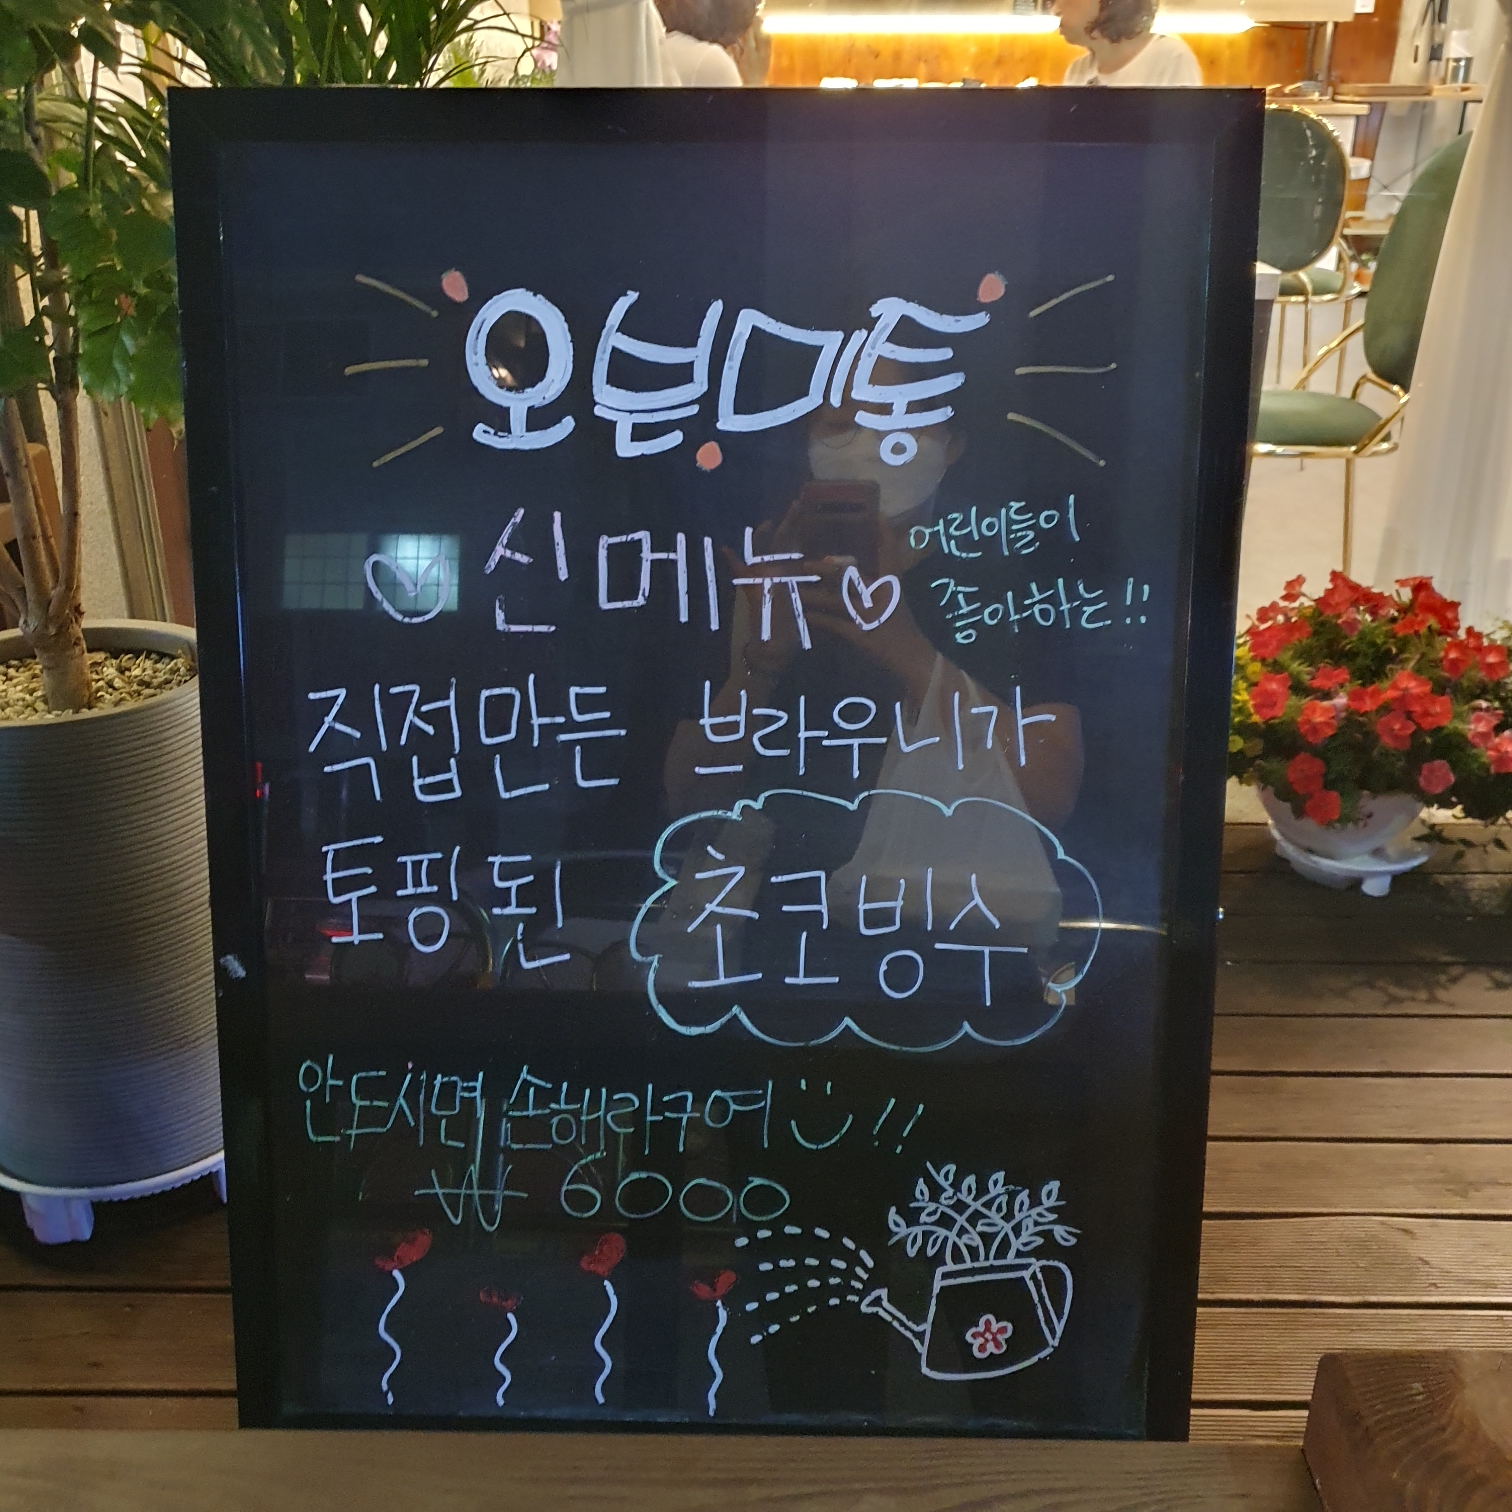 오븐미통
신메뉴
어린이들이
좋아하는!!
직접만든 브라우니가
토핑된 초코빙수
안드시면 손해라구여 !!
₩ 6000